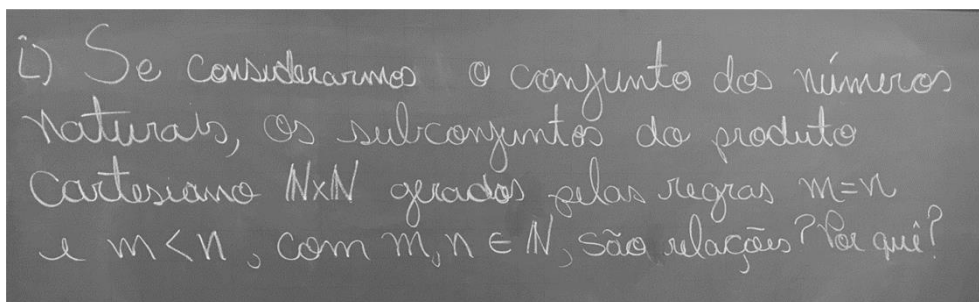 i) Se considerarmos o conjunto dos números
naturais, os subconjuntos do produto
cartesiano N×N gerados pelas regras m=n
e m<n, com m,n ∈ N, são relações? Por quê?